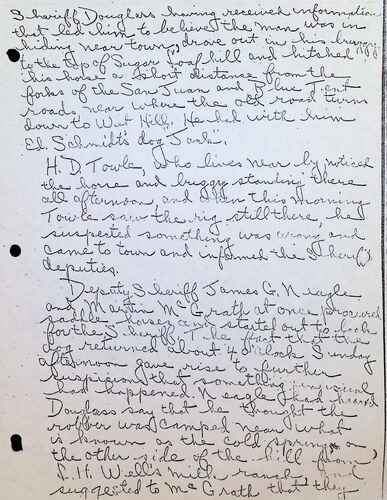 Sheriff Douglass having received information
that led him to believe the man was in
hiding near town, drove out in his buggy
to the top of Sugar Loaf hill and hitched
his horse a short distance from the
forks of the San Juan and Blue Tent
roads, near where the old road turns
down to Wet Hill. He had with him
Ed Schmidt's dog "Jack".
H. D. Towle, who lives near by, noticed
the horse and buggy standing there
all afternoon, and when this morning
Towle saw the rig still there, he
suspected something was wrong and
came to town and informed the Sheriff's
deputies.
Deputy Sheriff James G. Neagle
and Martin McGrath at once procured
saddle horses and started out to look
for the Sheriff. The fact that the
dog returned about 4 o'clock Sunday
afternoon gave rise to further
suspicion that something unusual
had happened. Neagle had heard
Douglass say that he thought the
robber was camped near what
is known as the cold spring on
the other side of the hill from
L. H. Wells milk ranch and
suggested to McGrath that they